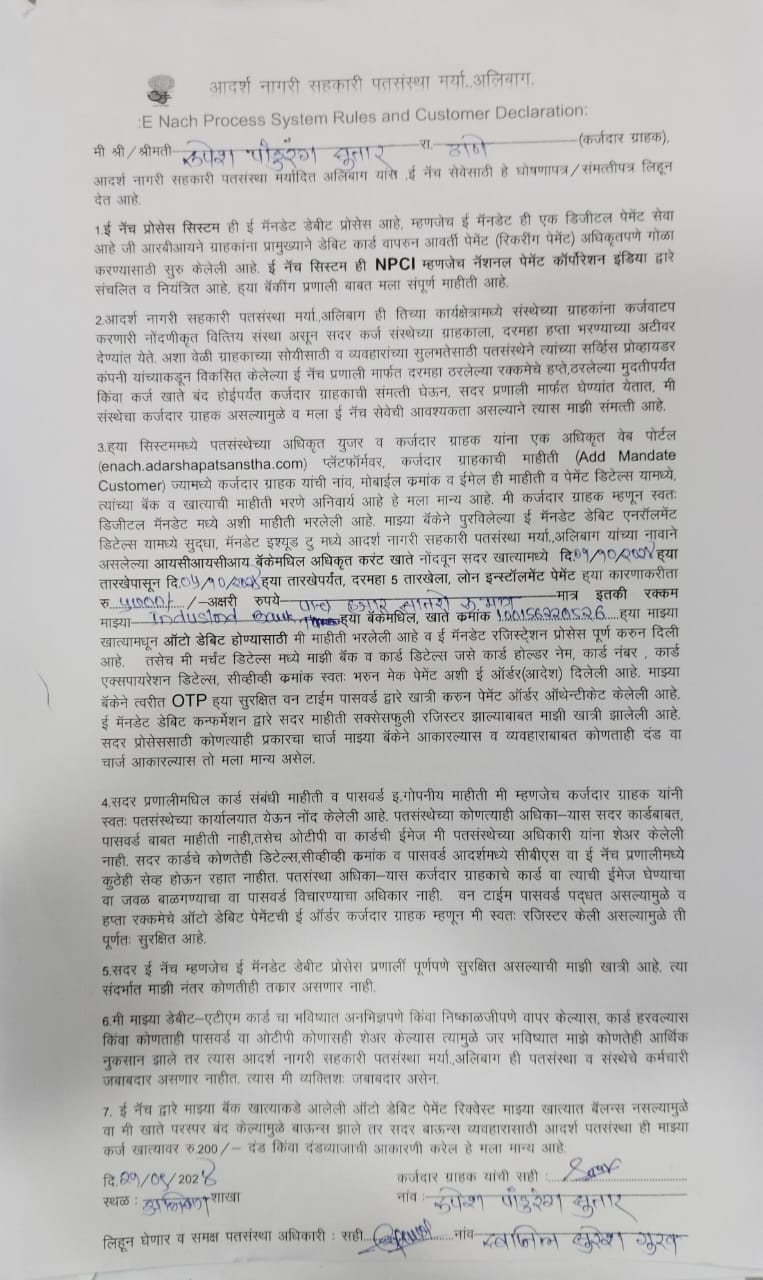 आदर्श नागरी सहकारी पतसंस्था मर्या..अलिबाग.
:E Nach Process System Rules and Customer Declaration:
मी श्री/श्रीमती रुपेश पांडुरंग सुतार रा. ठाणे (कर्जदार ग्राहक),
आदर्श नागरी सहकारी पतसंस्था मर्यादित अलिबाग यांस ,ई नॅच सेवेसाठी हे घोषणापत्र/संमत्तीपत्र लिहून
देत आहे.
1.ई नॅच प्रोसेस सिस्टम ही ई मॅनडेट डेबीट प्रोसेस आहे, म्हणजेच ई मॅनडेट ही एक डिजीटल पेमेंट सेवा
आहे जी आरबीआयने ग्राहकांना प्रामुख्याने डेबिट कार्ड वापरुन आवर्ती पेमेंट (रिकरींग पेमेंट) अधिकृतपणे गोळा
करण्यासाठी सुरु केलेली आहे. ई नॅच सिस्टम ही NPCI म्हणजेच नॅशनल पेमेंट कॉर्पोरेशन इंडिया द्वारे
संचलित व नियंत्रित आहे, हया बॅकींग प्रणाली बाबत मला संपूर्ण माहीती आहे.
2.आदर्श नागरी सहकारी पतसंस्था मर्या.,अलिबाग ही तिच्या कार्यक्षेत्रामध्ये संस्थेच्या ग्राहकांना कर्जवाटप
करणारी नोंदणीकृत वित्तिय संस्था असून सदर कर्ज संस्थेच्या ग्राहकाला, दरमहा हप्ता भरण्याच्या अटीवर
देण्यांत येते. अशा वेळी ग्राहकाच्या सोयीसाठी व व्यवहारांच्या सुलभतेसाठी पतसंस्थेने त्यांच्या सर्व्हिस प्रोव्हायडर
कंपनी यांच्याकडून विकसित केलेल्या ई नॅच प्रणाली मार्फत दरमहा ठरलेल्या रक्कमेचे हप्ते,ठरलेल्या मुदतीपर्यंत
किंवा कर्ज खाते बंद होईपर्यंत कर्जदार ग्राहकाची संमत्ती घेऊन, सदर प्रणाली मार्फत घेण्यांत येतात, मी
संस्थेचा कर्जदार ग्राहक असल्यामुळे व मला ई नॅच सेवेची आवश्यकता असल्याने त्यास माझी संमत्ती आहे.
3.हया सिस्टममध्ये पतसंस्थेच्या अधिकृत युजर व कर्जदार ग्राहक यांना एक अधिकृत वेब पोर्टल
(enach.adarshapatsanstha.com) प्लॅटफॉर्मवर, कर्जदार ग्राहकाची माहीती (Add Mandate
Customer) ज्यामध्ये कर्जदार ग्राहक यांची नांव, मोबाईल क्रमांक व ईमेल ही माहीती व पेमेंट डिटेल्स यामध्ये,
त्यांच्या बॅंक व खात्याची माहीती भरणे अनिवार्य आहे हे मला मान्य आहे. मी कर्जदार ग्राहक म्हणून स्वतः
डिजीटल मॅनडेट मध्ये अशी माहीती भरलेली आहे. माझ्या बॅकेने पुरविलेल्या ई मॅनडेट डेबिट एनरॉलमेंट
डिटेल्स यामध्ये सुद्धा, मॅनडेट इश्यूड टु मध्ये आदर्श नागरी सहकारी पतसंस्था मर्या.,अलिबाग यांच्या नावाने
असलेल्या आयसीआयसीआय बॅकेमधिल अधिकृत करंट खाते नोंदवून सदर खात्यामध्ये दि. हया
तारखेपासून दि. हया तारखेपर्यंत, दरमहा 5 तारखेला, लोन इन्स्टॉलमेंट पेमेंट हया कारणाकरीता
रु /-अक्षरी रुपये पाच हजार सातशे रु. मात्र मात्र इतकी रक्कम
माझ्या Indusind Bank हया बॅकेमधिल, खाते क्रमांक 100156220526 हया माझ्या
खात्यामधून ऑटो डेबिट होण्यासाठी मी माहीती भरलेली आहे व ई मॅनडेट रजिस्ट्रेशन प्रोसेस पूर्ण करुन दिली
आहे. तसेच मी मर्चंट डिटेल्स मध्ये माझी बॅक व कार्ड डिटेल्स जसे कार्ड होल्डर नेम, कार्ड नंबर , कार्ड
एक्सपायरेशन डिटेल्स, सीव्हीव्ही क्रमांक स्वतः भरुन मेक पेमेंट अशी ई ऑर्डर(आदेश) दिलेली आहे. माझ्या
बॅकेने त्वरीत OTP हया सुरक्षित वन टाईम पासवर्ड द्वारे खात्री करुन पेमेंट ऑर्डर ऑथेन्टीकेट केलेली आहे.
ई मॅनडेट डेबिट कन्फर्मेशन द्वारे सदर माहीती सक्सेसफुली रजिस्टर झाल्याबाबत माझी खात्री झालेली आहे.
सदर प्रोसेससाठी कोणत्याही प्रकारचा चार्ज माझ्या बॅकेने आकारल्यास व व्यवहाराबाबत कोणताही दंड वा
चार्ज आकारल्यास तो मला मान्य असेल.
4.सदर प्रणालीमधिल कार्ड संबंधी माहीती व पासवर्ड इ.गोपनीय माहीती मी म्हणजेच कर्जदार ग्राहक यांनी
स्वतः पतसंस्थेच्या कार्यालयात येऊन नोंद केलेली आहे. पतसंस्थेच्या कोणत्याही अधिका–यास सदर कार्डबाबत,
पासवर्ड बाबत माहीती नाही,तसेच ओटीपी वा कार्डची ईमेज मी पतसंस्थेच्या अधिकारी यांना शेअर केलेली
नाही. सदर कार्डचे कोणतेही डिटेल्स,सीव्हीव्ही क्रमांक व पासवर्ड आदर्शमध्ये सीबीएस वा ई नॅच प्रणालीमध्ये
कुठेही सेव्ह होऊन रहात नाहीत. पतसंस्था अधिका–यास कर्जदार ग्राहकाचे कार्ड वा त्याची ईमेज घेण्याचा
वा जवळ बाळगण्याचा वा पासवर्ड विचारण्याचा अधिकार नाही. वन टाईम पासवर्ड पद्धत असल्यामुळे व
हप्ता रक्कमेचे ऑटो डेबिट पेमेंटची ई ऑर्डर कर्जदार ग्राहक म्हणून मी स्वतः रजिस्टर केली असल्यामुळे ती
पूर्णतः सुरक्षित आहे.
5.सदर ई नॅच म्हणजेच ई मॅनडेट डेबीट प्रोसेस प्रणालीं पूर्णपणे सुरक्षित असल्याची माझी खात्री आहे. त्या
संदर्भात माझी नंतर कोणतीही तकार असणार नाही.
6.मी माझ्या डेबीट-एटीएम कार्ड चा भविष्यात अनभिज्ञपणे किंवा निष्काळजीपणे वापर केल्यास, कार्ड हरवल्यास
किंवा कोणताही पासवर्ड वा ओटीपी कोणासही शेअर केल्यास त्यामुळे जर भविष्यात माझे कोणतेही आर्थिक
नुकसान झाले तर त्यास आदर्श नागरी सहकारी पतसंस्था मर्या.,अलिबाग ही पतसंस्था व संस्थेचे कर्मचारी
जबाबदार असणार नाहीत. त्यास मी व्यक्तिशः जबाबदार असेन.
7. ई नॅच द्वारे माझ्या बॅक खात्याकडे आलेली ऑटो डेबिट पेमेंट रिक्वेस्ट माझ्या खात्यात बॅलन्स नसल्यामुळे
वा मी खाते परस्पर बंद केल्यामुळे बाऊन्स झाले तर सदर बाऊन्स व्यवहारासाठी आदर्श पतसंस्था ही माझ्या
कर्ज खात्यावर रु.200/- दंड किंवा दंडव्याजाची आकारणी करेल हे मला मान्य आहे.
दि. कर्जदार ग्राहक यांची सही :
स्थळ : अलिबाग शाखा नांव : रुपेश पांडुरंग सुतार
लिहून घेणार व समक्ष पतसंस्था अधिकारी : सही नांव स्वप्निल सुरेश गुरव